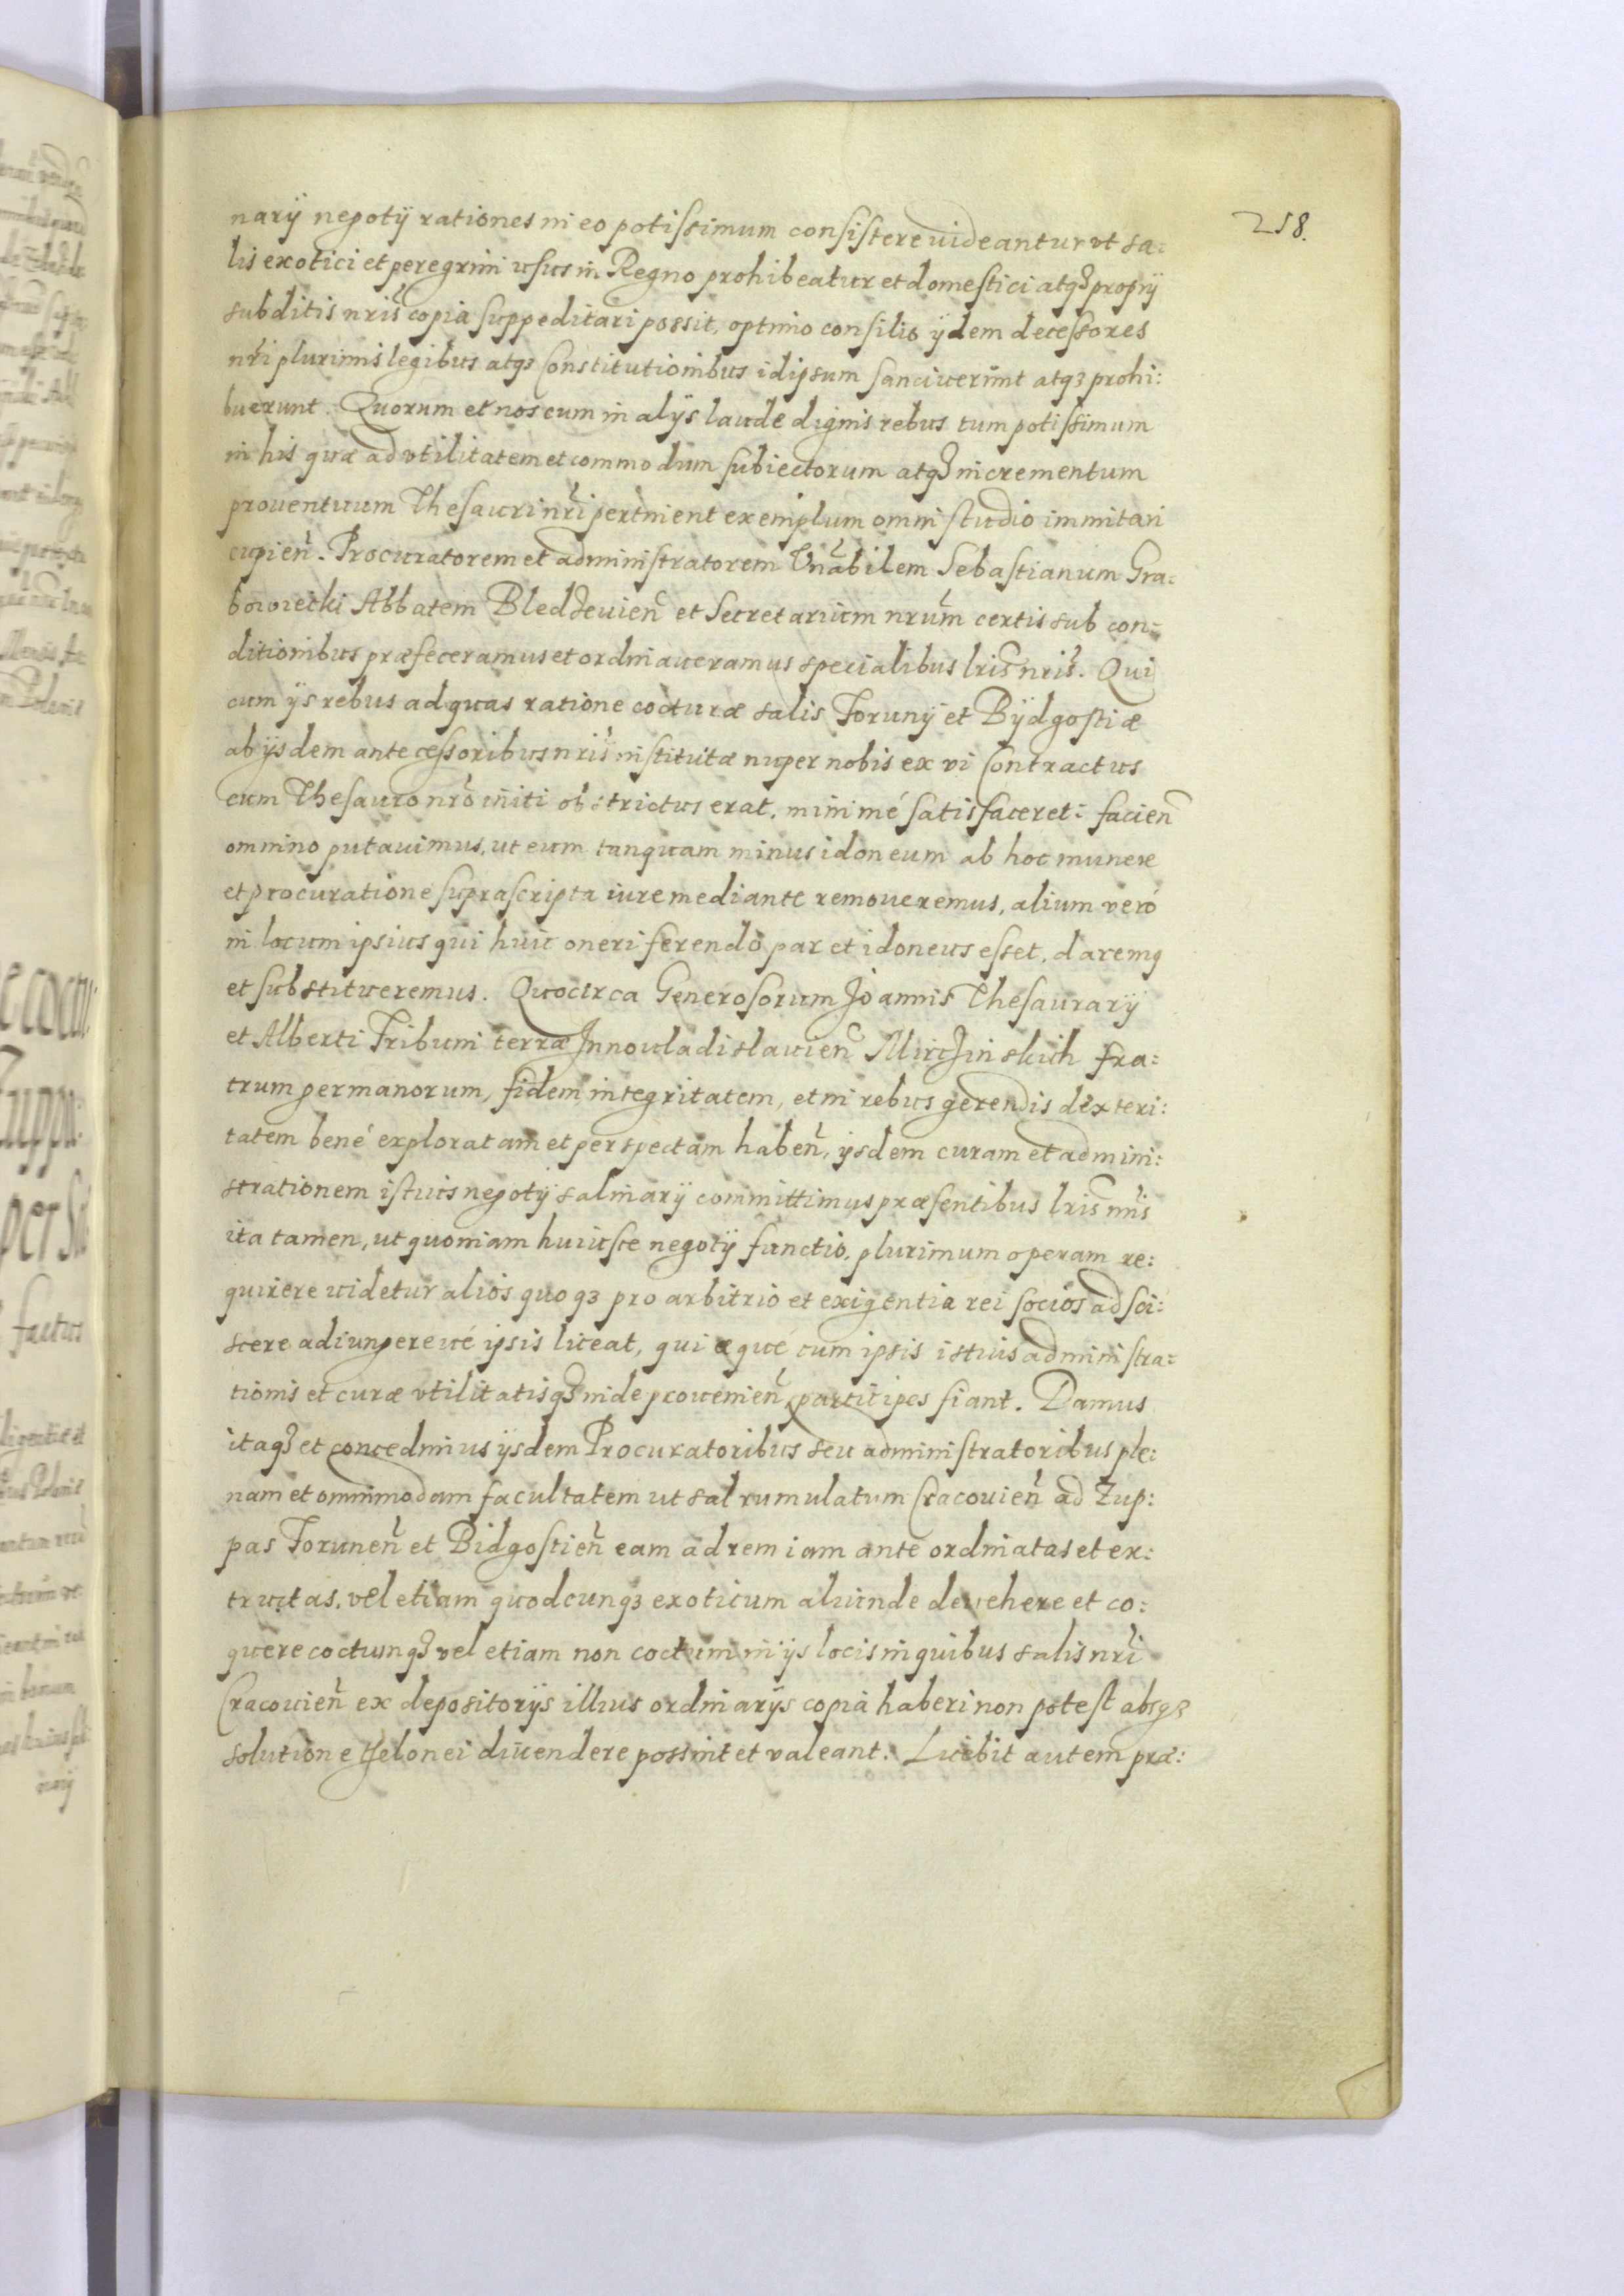 258.
narij negotij rationes in eo potissimum consistere videantur vt sa:
lis exotici et peregrini usus in Regno prohibeatur et domestici atq3 proprij
subditis nris copia suppeditari possit, optimo consilio ijdem decessores
nri plurimis legibus atq3 Constitutionibus idipsum sanciverunt atq3 prohi:
buerunt. Quorum et nos cum in alijs laude dignis rebus tum potissimum
in his quæ ad vtilitatem et commodum subiectorum atq3 incrementum
proventuum Thesauri nri pertinent exemplum omni studio immitari
cupien. Procuratorem et administratorem Vnabilem Sebastianum Gra:
bowiecki Abbatem Bledzevien et Secretarium nrum certis sub con:
ditionibus præfeceramus et ordinaveramus specialibus lris nris. Qui
cum ijs rebus ad quas ratione cocturæ salis Torunij et Bÿdgostiæ
ab ijsdem antecessoribus nris institutæ nuper nobis ex vi Contractus
cum Thesauro nro initi obstrictus erat, minimé satisfaceret: facien
omnino putavimus, ut eum tanquam minus idoneum ab hoc munere
et procuratione suprascripta iure mediante removeremus, alium veró
in locum ipsius qui huic oneri ferendo par et idoneus esset, daremq
et substitueremus. Quocirca Generosorum Joannis Thesaurarij
et Alberti Tribuni terræ Jnnowladislavien Mirzinskich fra:
trum germanorum, fidem, integritatem, et in rebus gerendis dexteri:
tatem bené exploratam et perspectam haben, ijsdem curam et admini:
strationem istius negotij salinarij committimus præsentibus lris nris
ita tamen, ut quoniam huiusce negotij functio, plurimum operam re:
quirere videtur alios quoq3 pro arbitrio et exigentia rei socios adsci:
scere adiungere vé ipsis liceat, qui æqué cum ipsis istius administra:
tionis et curæ vtilitatisq3 inde provenien, participes fiant. Damus
itaq3 et concedimus ijsdem Procuratoribus seu administratoribus ple:
nam et omnimodam facultatem ut sal rumulatum Cracovien ad Zup:
pas Torunen et Bidgostien eam ad rem iam ante ordinatas et ex:
tructas, vel etiam quodcunq3 exoticum aliunde devehere et co:
quere coctumq3 vel etiam non coctum in ijs locis in quibus salis nri
Cracovien ex depositorijs illius ordinarijs copia haberi non potest absq3
solutione thelonei divendere possint et valeant. Licebit autem præ: